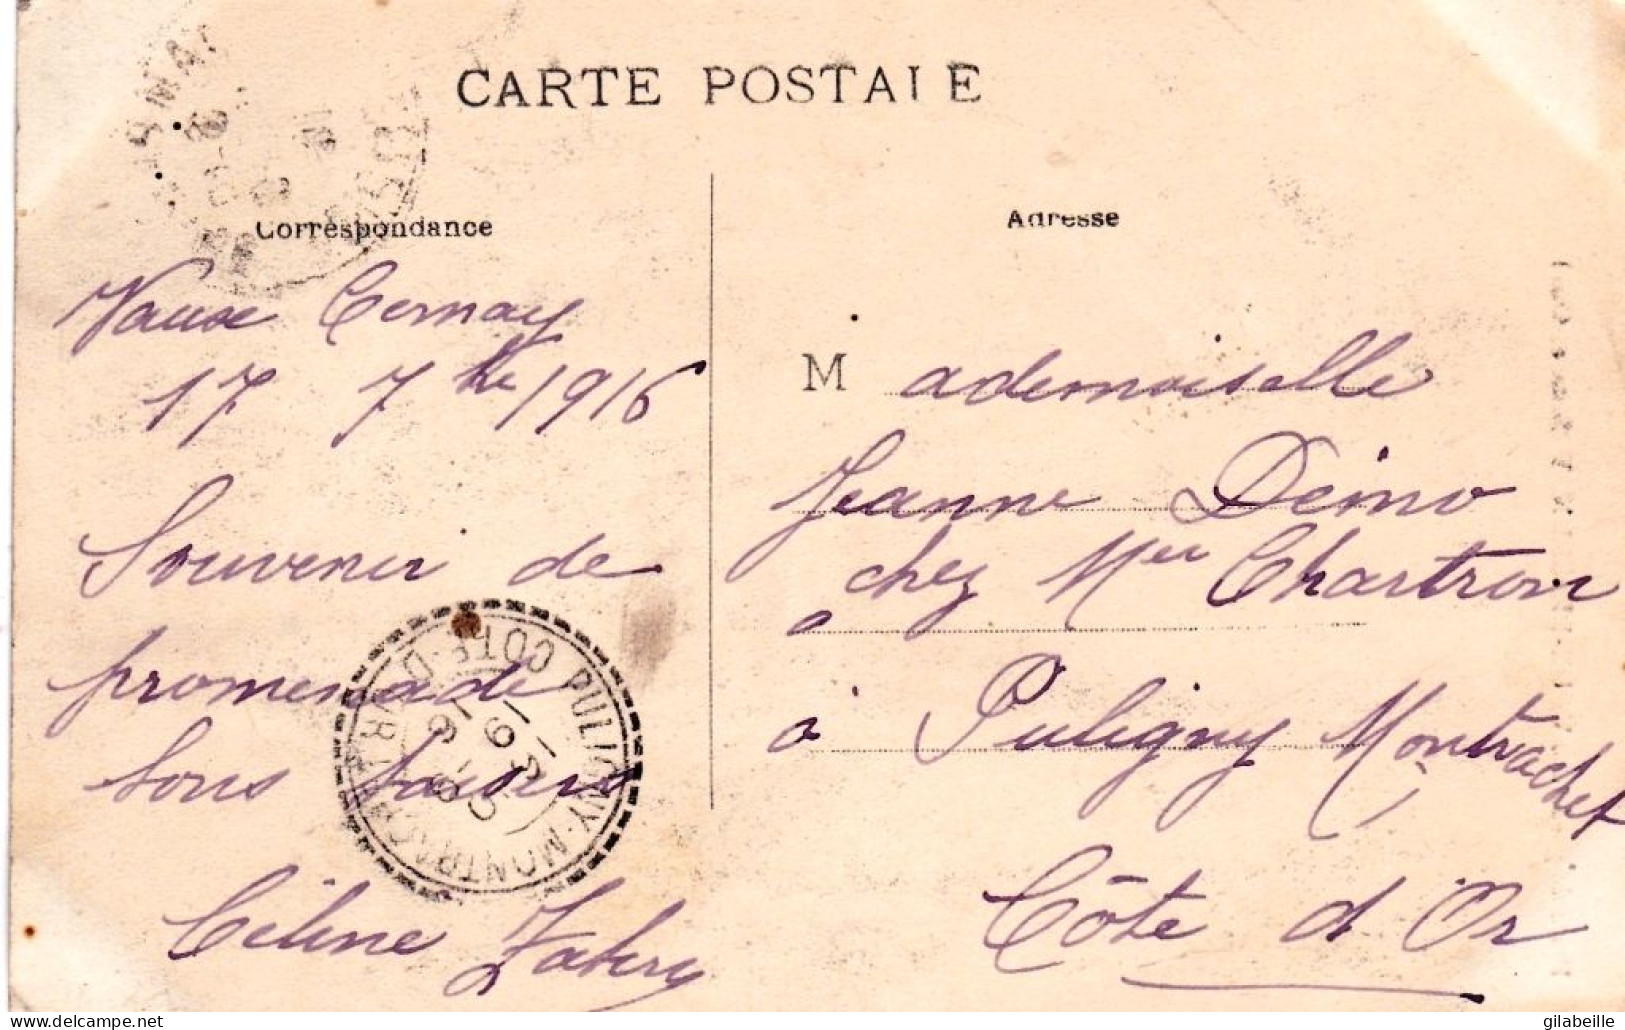 CARTE POSTALE
Correspondance
Adresse
Vaux Cernay
17 7bre 1916
Souvenir de
promenade
bons baisers
Céline Fabery
Mademoiselle
Jeanne Demo
chez Mer Chartron
à Puligny Montrachet
Côte d'Or
PULIGNY-MONTRACHET
COTE-D'OR
delcampe.net
gilabeille